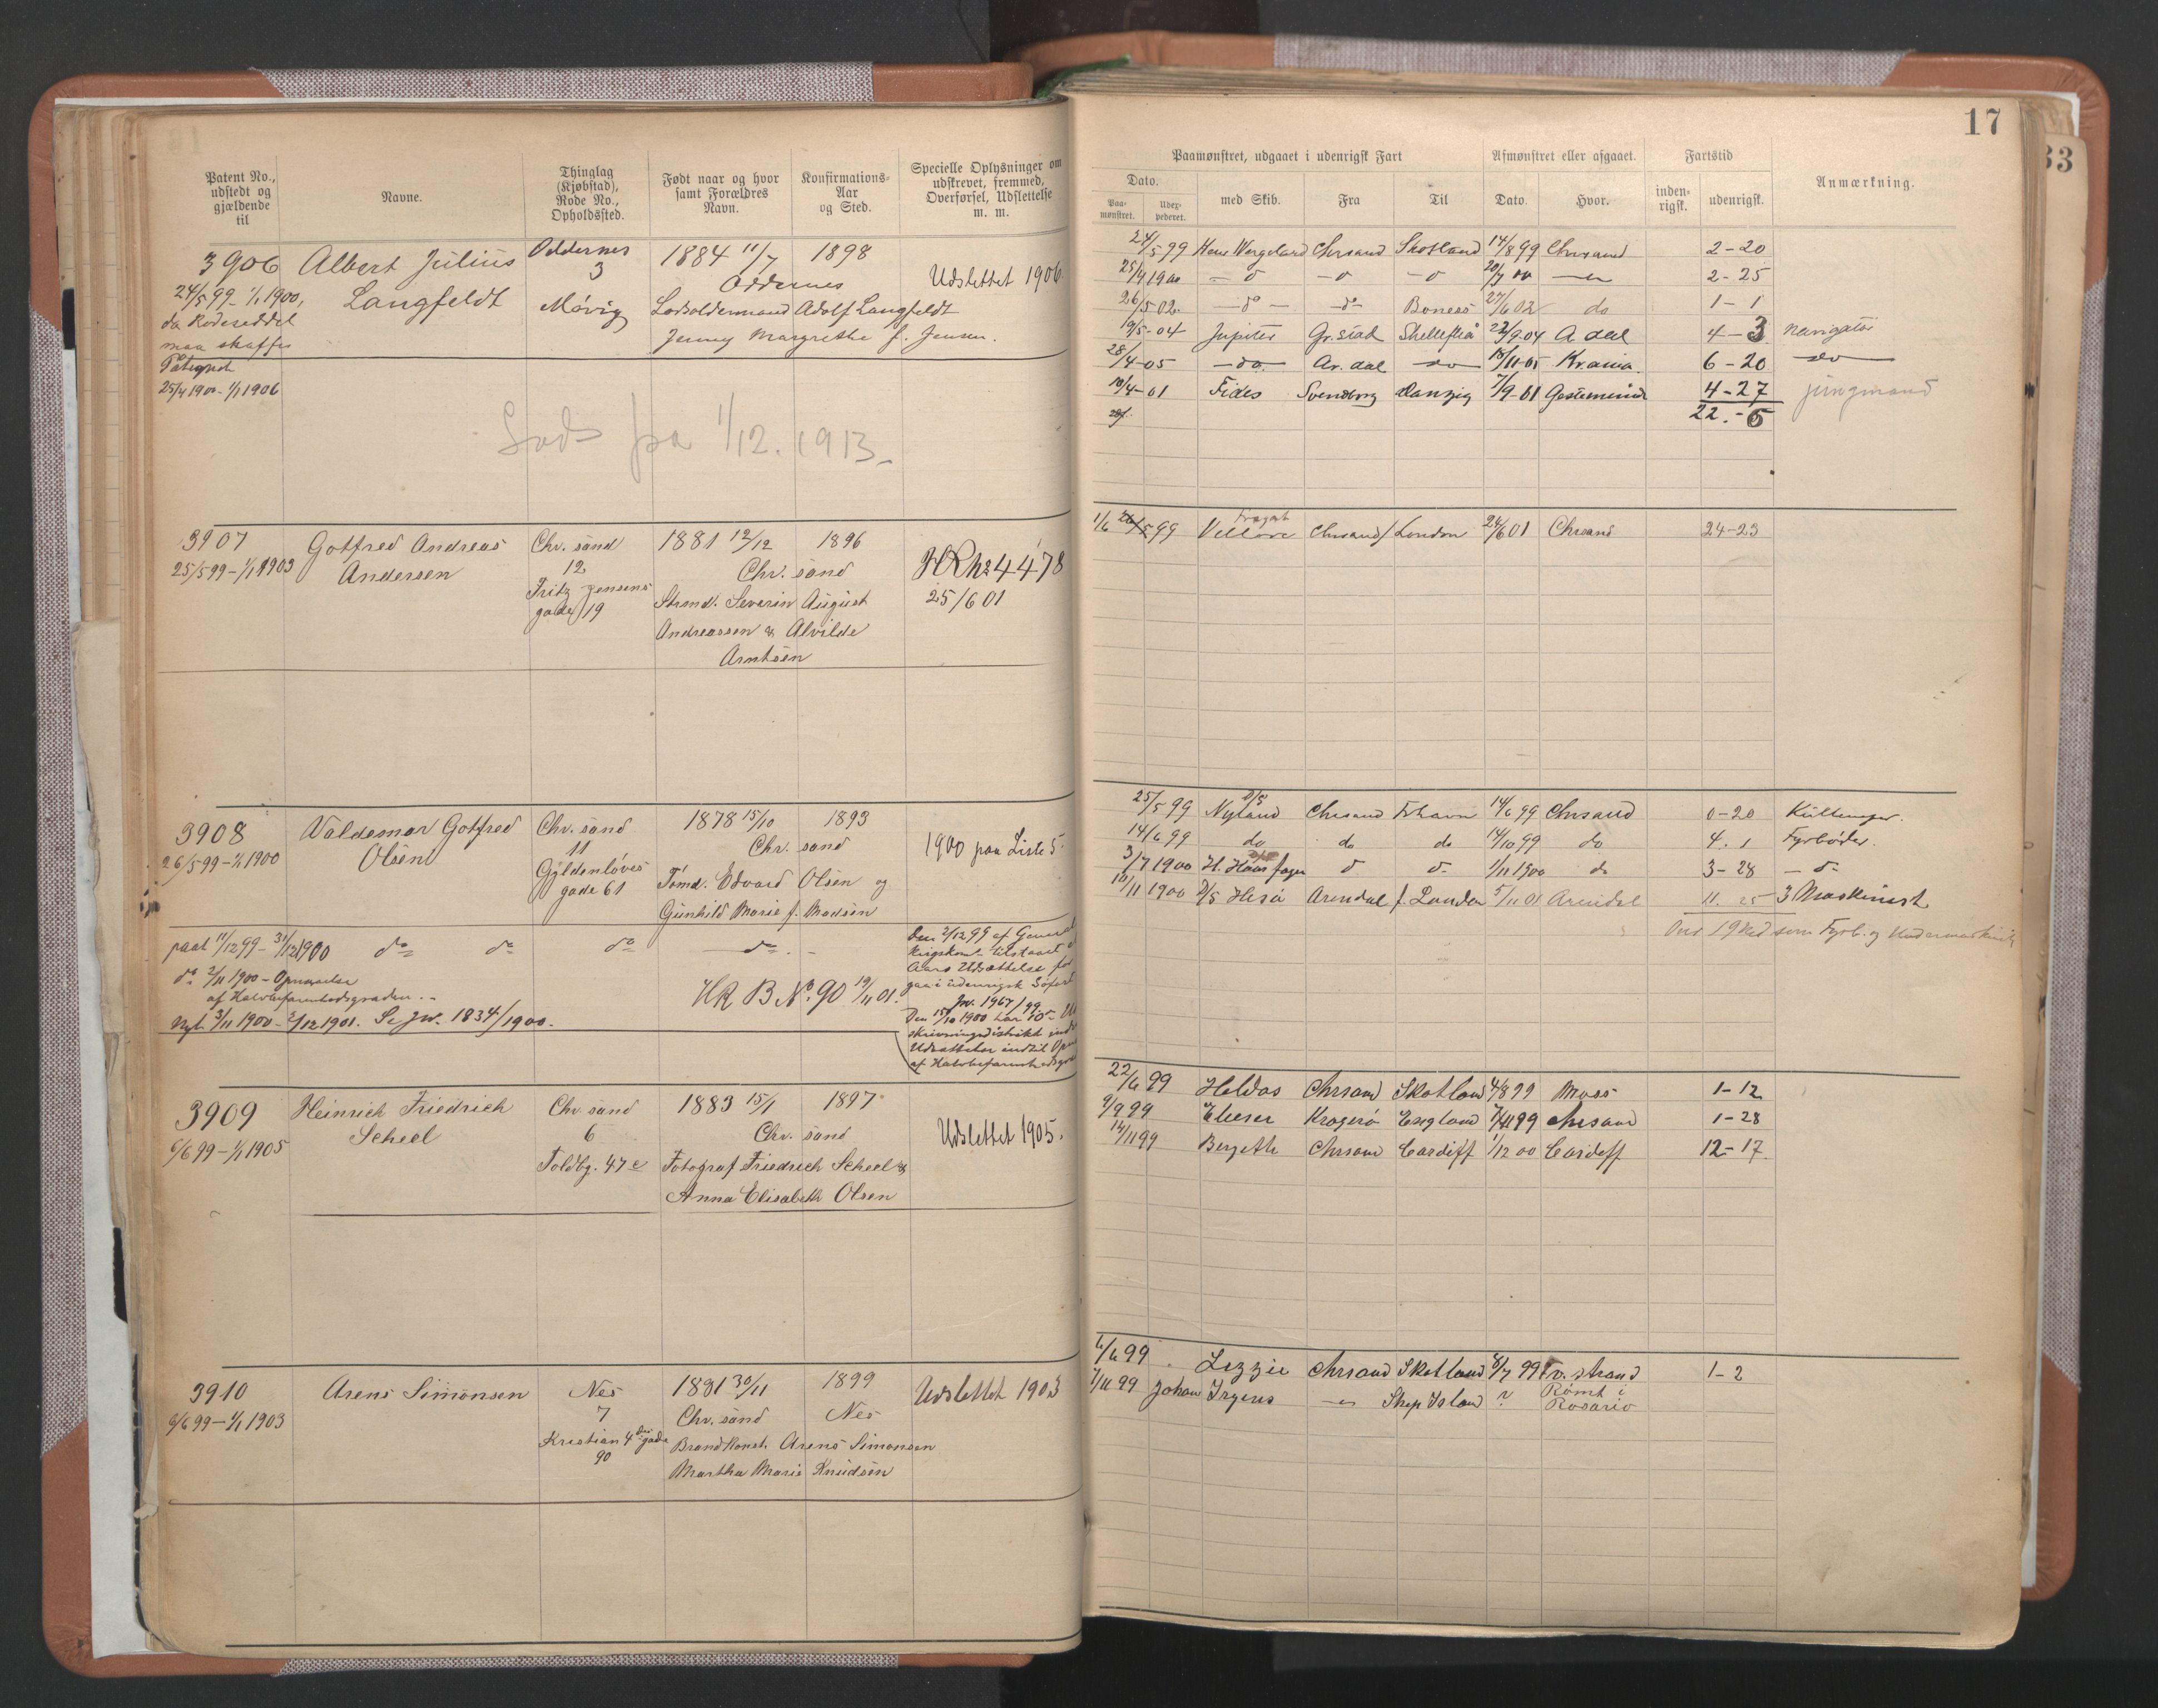 Patent No.,
udstedt og
gjældende
til
Navne.
Thinglag
(Kjøbstad),
Rode No.,
Opholdssted.
Født naar og hvor
samt Forældres
Navn.
Konfirmations-
Aar
og Sted.
Specielle Oplysninger om
udskrevet, fremmed,
Overførsel, Udslettelse
m. m.
3906 Albert Julius Oddernes 1884 11/7 1898
3 Oddernes Udslettet 1906.
24/5 99 - 1/1 1900, Langfeldt Mövig Lodsoldermand Adolf Langfeldt
da Rodeseddel Jenny Margrethe f. Jensen.
maa skaffes
Pategnet
25/4 1900 - 1/1 1906
Lods fra 1/12. 1913.
3907 Gotfred Andreas Chr. sand 1881 12/12 1896
25/5 99 - 1/1 1903 Andersen 12 Chr. sand HR No 4478
Fritz Jensens Strmd. Severin August 25/6 01
gade 19 Andreassen & Alvilde
Arntsen
3908 Valdemar Gotfred Chr. sand 1878 15/10 1893
26/5 99 - 1/1 1900 Olsen 11 Chr. sand 1900 paa Liste 5.
Gyldenløves Tömd. Edvard Olsen og
gade 61 Gunhild Marie f. Madsen
paat 11/12 99 - 31/12 1900 do do do do
do 2/11 1900 - Opnaaelse
af Halvbefarenhedsgraden.
nyt 3/11 1900 - 2/12 1901. Se Jw. 1834/1900.
HR B No. 90 19/11 01.
Den 2/12 99 af General
Krigskom. tilstaaet
Aars Udsættelse for
gaa i udenrigsk Söfart
Jw. 1967/99
Den 15/10 1900 har
skrivningsdistrikt
Udsættelse indtil
af Halvbefarenhedsgra
3909 Heinrich Friedrich Chr. sand 1883 15/1 1897
6/6 99 - 1/1 1905 Scheel 6 Chr. sand Udslettet 1905.
Toldbg. 47 c Fotograf Friedrich Scheel &
Anna Elisabeth Olsen
3910 Arens Simonsen Nes 1881 30/11 1899 Udslettet 1903
6/6 99 - 1/1 1903 7 Chr. sand Nes
Kristian 4 des gade Brandkonst. Arens Simonsen
90 Martha Marie Knudsen
17
33
Paamønstret, udgaaet i udenrigsk Fart
Afmønstret eller afgaaet.
Fartstid
Anmærkning.
Dato.
Paa-
mønstret.
Udex-
pederet.
med Skib.
Fra
Til
Dato.
Hvor.
inden-
rigsk.
udenrigsk.
24/5 99 Henr Wergeland Chrsand Skotland 14/8 99 Chrsand 2-20
25/4 1900 - o - o - o 20/7 00 2-25
26/5-02. - do - - do Boness 27/6 02 do 1-1
19/5-04 Jupiter Gr.stad Skelleftiå 22/9-04 A dal 4-3 navigatör
28/4-05 - do - Ar. dal do 18/11-05 Kr.ania. 6-20 do
10/4-01 Fides Svendborg Danzig 7/9-01 Gestemünde 4-27 jungmand
22.-6
1/6 26/5 99 Fregat Vellore Chrsand / London 24/6 01 Chrsand 24-23
25/5 99 D/S Nyland Chrsand Frhavn 14/6 99 Chrsand 0-20 Kullemper.
14/6 99 do do do 14/10 99 do 4.1 Fyrböder.
3/7 1900 H. Haarfager o o 1/11 1900 do 3-28 - o -
10/11 1900 D/S Hisö Arendal f. London 5/11 01 Arendal 11. 25 3 Maskinist
19 Med som Fyrb. og Undermaskinist
22/6 99 Heldos Chrsand Skotland 4/8 99 Moss 1-12
9/9 99 Elieser Kragerö England 7/11 99 Chrsand 1-28
14/11 99 Bergethe Chrsand Cardiff 1/12 00 Cardiff 12-17
6/6 99 Lizzie Chrsand Skotland 8/7 99 v. strand 1-2
1/11 99 Johan Irgens Ship Island ? Römt i
Rosario